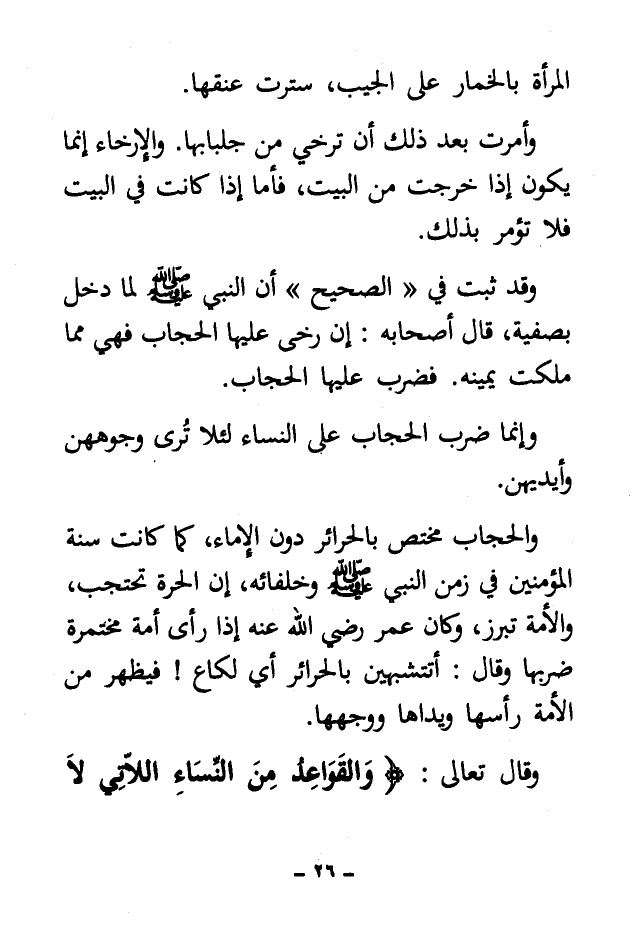 المرأة بالخمار على الجيب، سترت عنقها.
وأمرت بعد ذلك أن ترخي من جلبابها. والإرخاء إنما
يكون إذا خرجت من البيت، فأما إذا كانت في البيت
فلا تؤمر بذلك.
وقد ثبت في « الصحيح » أن النبي ﷺ لما دخل
بصفية، قال أصحابه : إن رخى عليها الحجاب فهي مما
ملكت يمينه. فضرب عليها الحجاب.
وإنما ضرب الحجاب على النساء لئلا تُرى وجوههن
وأيديهن.
والحجاب مختص بالحرائر دون الإماء، كما كانت سنة
المؤمنين في زمن النبي ﷺ وخلفائه، إن الحرة تحتجب،
والأمة تبرز، وكان عمر رضي الله عنه إذا رأى أمة مختمرة
ضربها وقال : أتتشبهين بالحرائر أي لكاع ! فيظهر من
الأمة رأسها ويداها ووجهها.
وقال تعالى : ﴿ وَالقَوَاعِدُ مِنَ النِّسَاءِ اللاَّتِي لاَ
- ٢٦ -